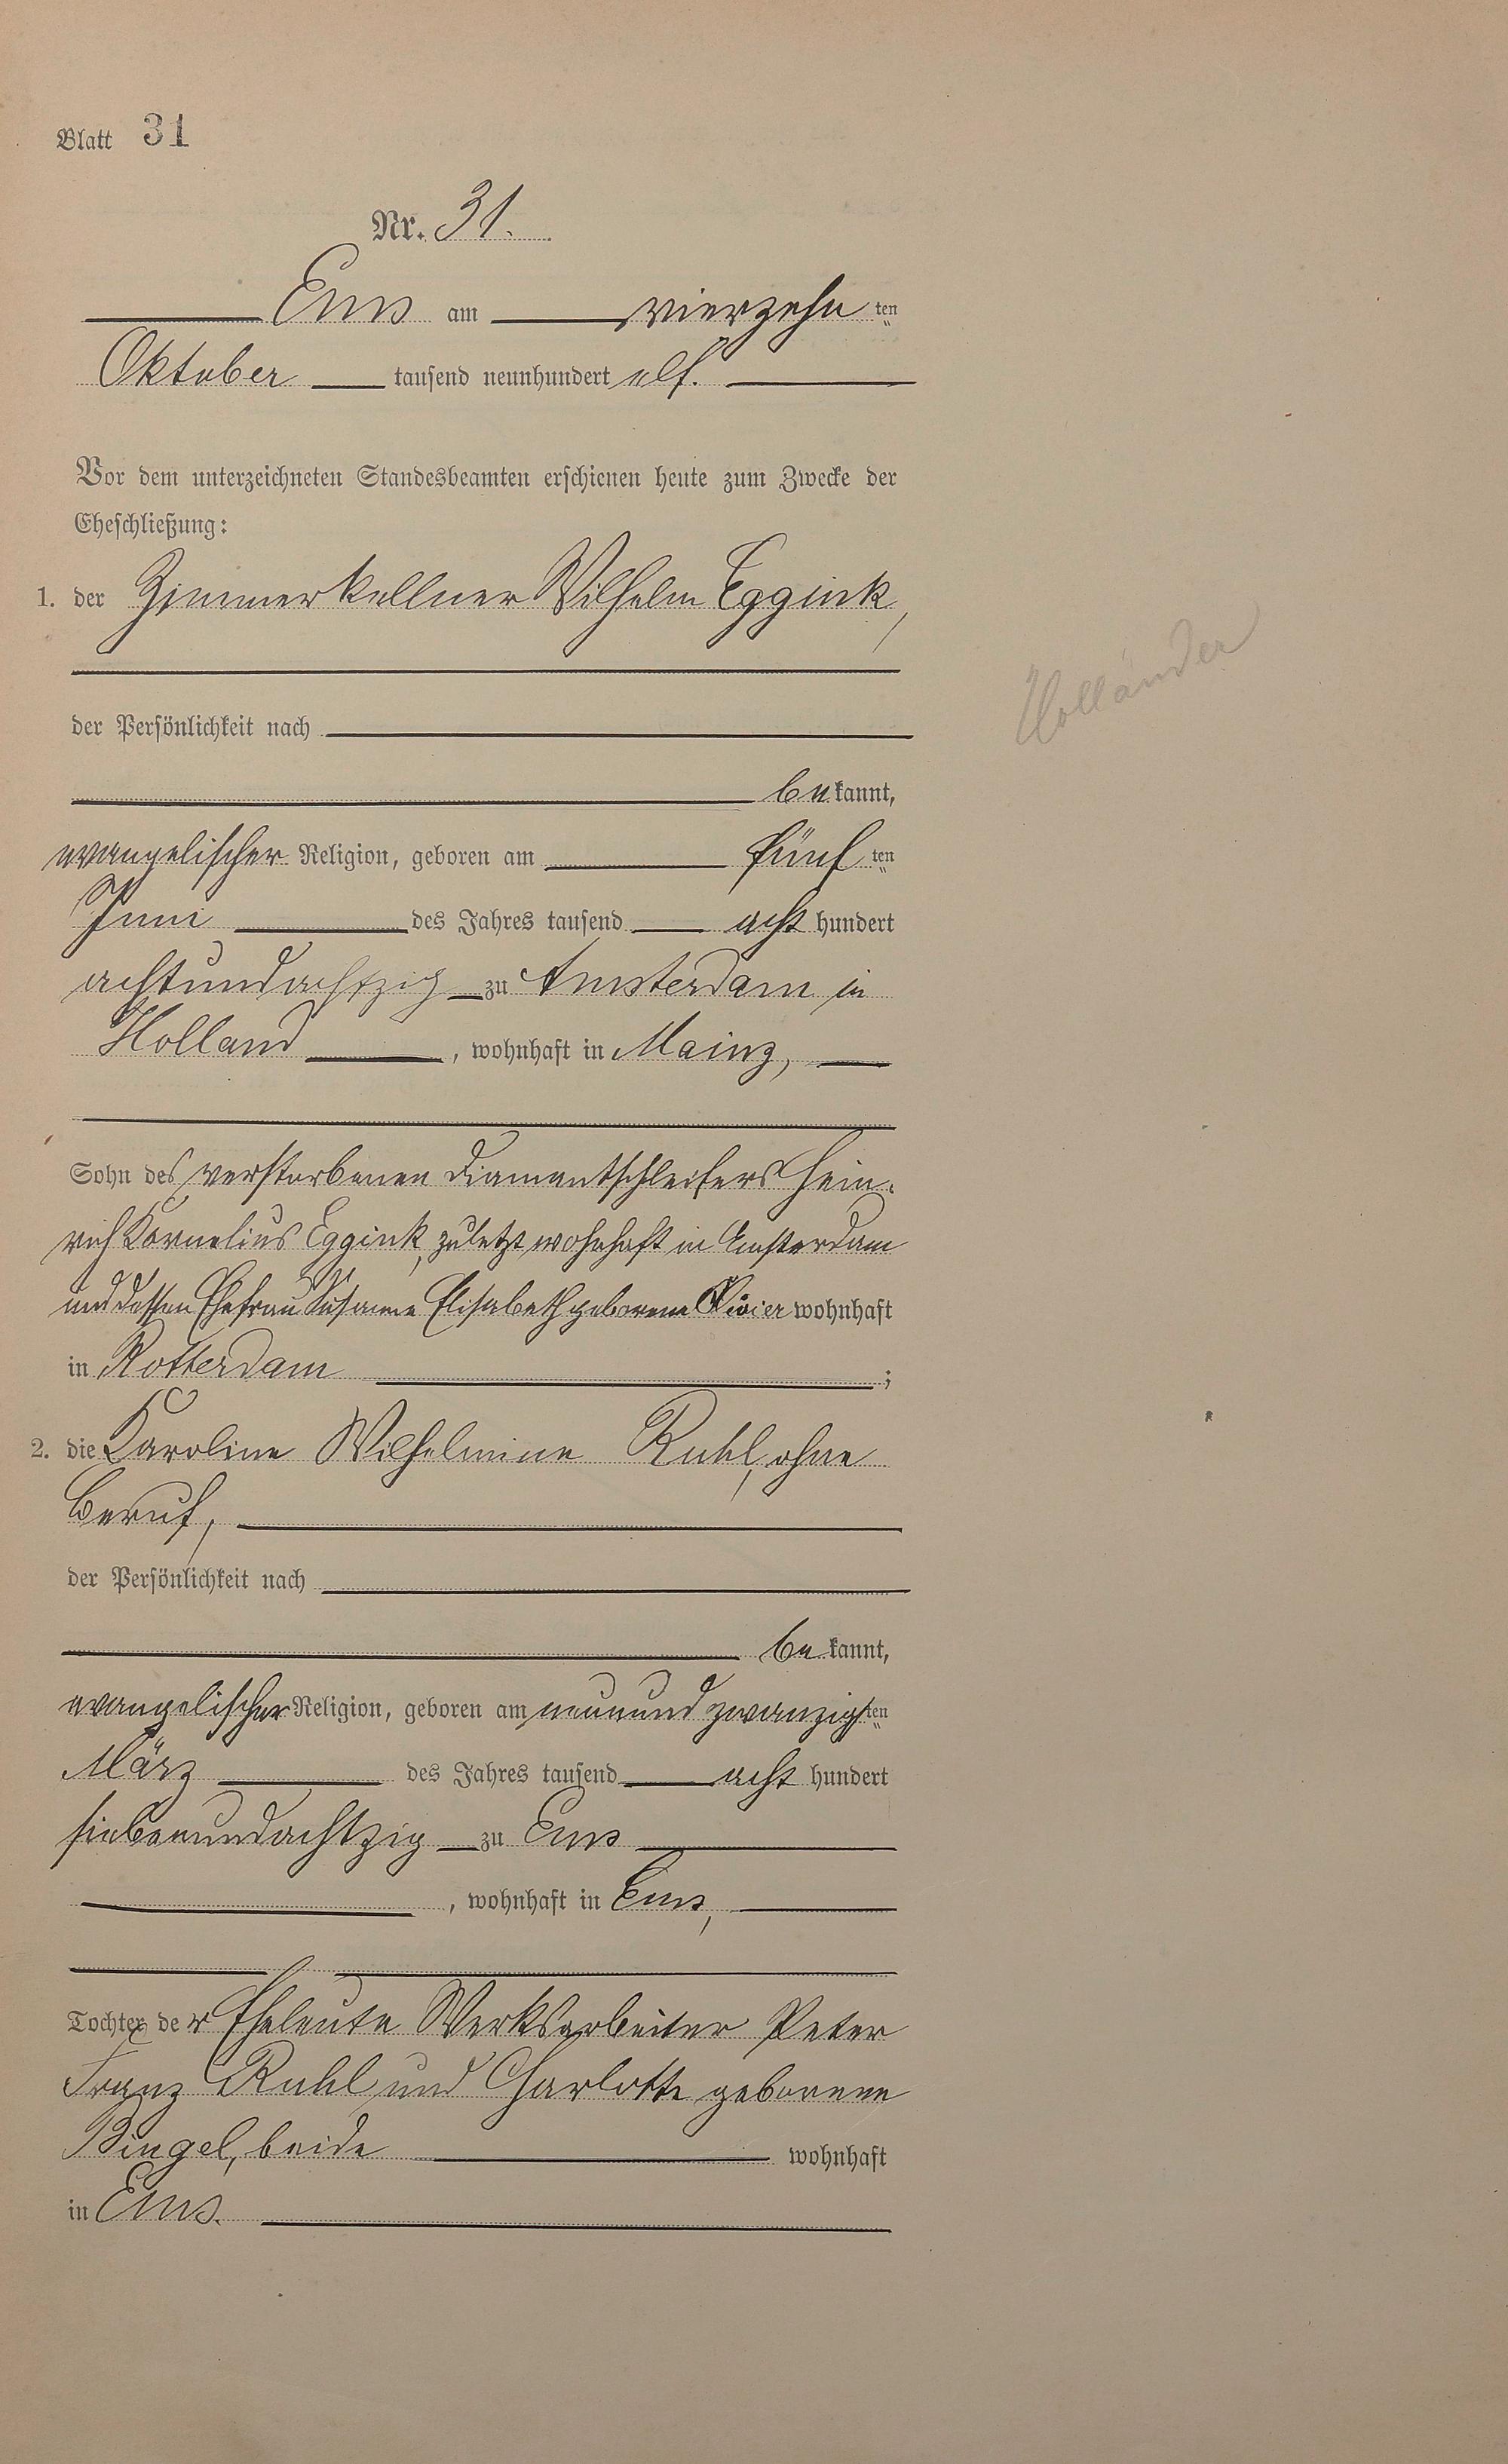 Blatt 31
Nr. 31.
Ems am vierzehn ten
Oktober tausend neunhundert elf.
Vor dem unterzeichneten Standesbeamten erschienen heute zum Zwecke der
Eheschließung:
1. der Zimmerkellner Wilhelm Eggink,
Holländer
der Persönlichkeit nach
be kannt,
evangelischer Religion, geboren am fünf ten
Juni des Jahres tausend acht hundert
achtundachtzig zu Amsterdam in
Holland, wohnhaft in Mainz,
Sohn des verstorbenen Diamantschleifers Hein-
rich Kornelius Eggink, zuletzt wohnhaft in Amsterdam
und dessen Ehefrau Susanne Elisabeth geborene wohnhaft
in Rotterdam;
2. die Karoline Wilhelmine Ruhl, ohne
Beruf,
der Persönlichkeit nach
be kannt,
evangelischer Religion, geboren am neunundzwanzigsten
März des Jahres tausend acht hundert
siebenundachtzig zu Ems
, wohnhaft in Ems,
Tochter der Eheleute Werksarbeiter Peter
Franz Ruhl und Charlotte geborene
Bingel, beide wohnhaft
in Ems.